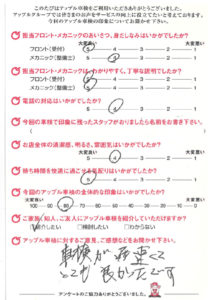 このたびはアップル車検をご利用いただきありがとうございました。
アップルグループでは皆さまのお声をサービスの向上に役立てたいと考えております。
今回のアップル車検の印象についてお聞かせ下さい。
担当フロント・メカニックのあいさつ、身だしなみはいかがでしたか?
大変良い 大変悪い
フロント(受付) 5 4 3 2 1
メカニック(整備士) 5 4 3 2 1
担当フロント・メカニックはわかりやすく、丁寧な説明でしたか?
大変良い 大変悪い
フロント(受付) 5 4 3 2 1
メカニック(整備士) 5 4 3 2 1
電話の対応はいかがでしたか?
5 4 3 2 1
今回の車検で印象に残ったスタッフがおりましたら名前をお書き下さい。
お店全体の清潔感、明るさ、雰囲気はいかがでしたか?
大変良い 大変悪い
5 4 3 2 1
待ち時間を快適に過ごせる気配りはいかがでしたか?
5 4 3 2 1
今回のアップル車検の全体的な印象はいかがでしたか?
大変良い 大変悪い
100 90 80 70 60 50 40 30 20 10 0
ご家族、知人、ご友人にアップル車検を紹介していただけますか?
紹介したい 検討したい わからない
アップル車検に対するご意見、ご感想などをお聞かせ下さい。
車検が
とても 良かったです
アンケートのご協力ありがとうございました。